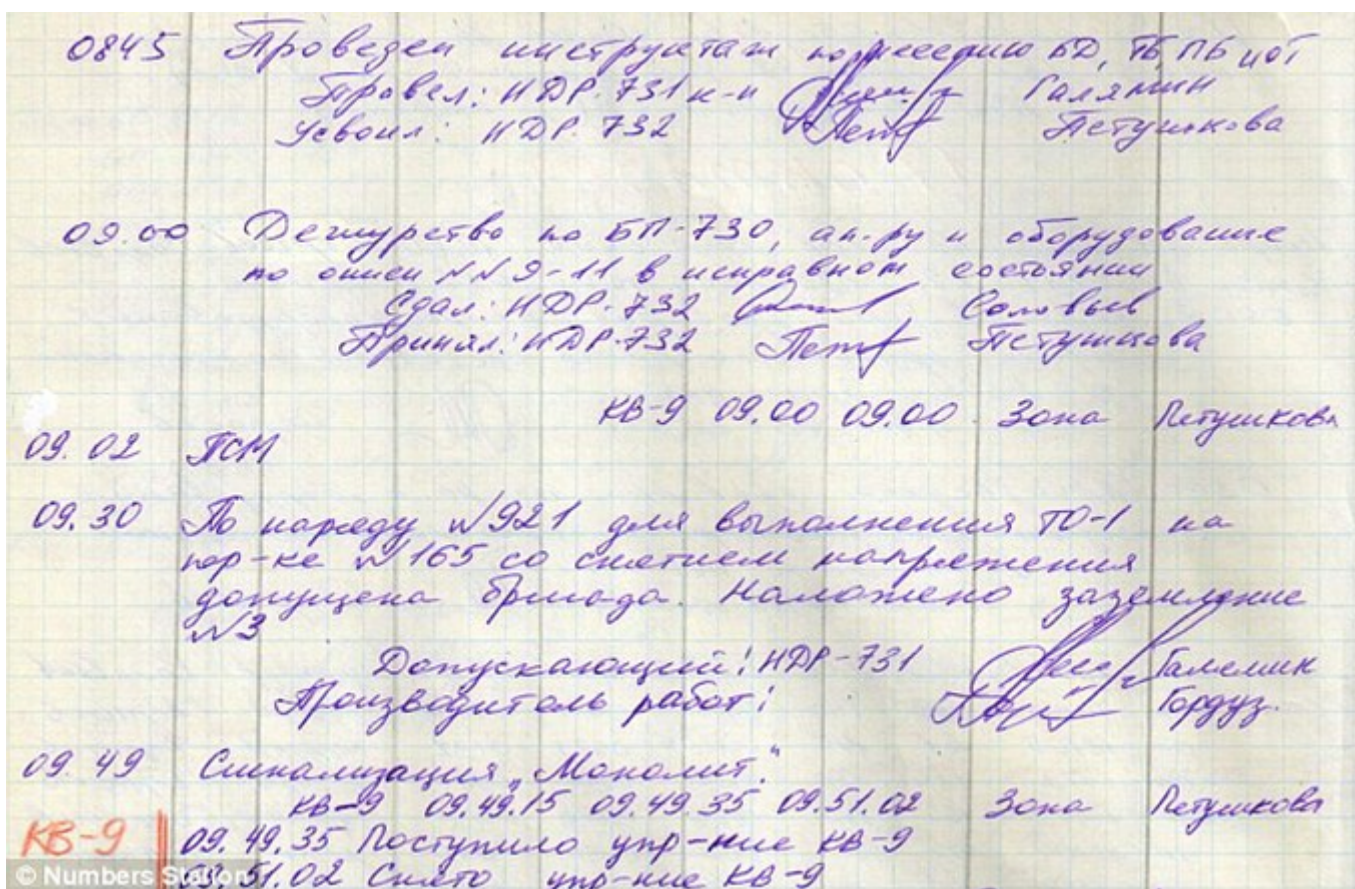 0845 Проведен инструктаж по несению БД, ТБ, ПБ и ОТ
Провел: НДР. 731 к-н Галямин
Усвоил: НДР. 732 Петушкова
09.00 Дежурство по БП-730, ап.-ру и оборудование
по описи NN 9-11 в исправном состоянии
Сдал: НДР. 732 Соловьев
Принял: НДР-732 Петушкова
КВ-9 09.00 09.00 Зона Петушкова
09.02 ПСМ
09.30 По наряду N921 для выполнения ТО-1 на
пер-ке N165 со снятием напряжения
допущена бригада. Наложено заземление
N3
Допускающий: НДР-731 Галямин
Производитель работ: Гордуз.
09.49 Сигнализация „Монолит."
КВ-9 09.49.15 09.49.35 09.51.02 Зона Петушкова
КВ-9 09.49.35 Поступило упр-ние КВ-9
09.51.02 Снято упр-ние КВ-9
© Numbers Station